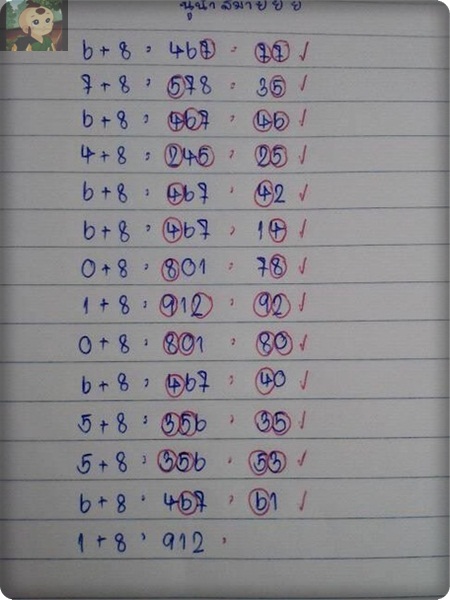 6 + 8 : 467 : 77 ✓
7 + 8 : 578 : 35 ✓
6 + 8 : 467 : 46 ✓
4 + 8 : 245 : 25 ✓
6 + 8 : 467 : 42 ✓
6 + 8 : 467 : 14 ✓
0 + 8 : 801 : 78 ✓
1 + 8 : 912 : 92 ✓
0 + 8 : 801 : 80 ✓
6 + 8 : 467 : 40 ✓
5 + 8 : 356 : 35 ✓
5 + 8 : 356 : 53 ✓
6 + 8 : 467 : 61 ✓
1 + 8 : 912 :